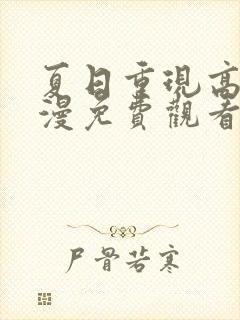 夏日重現高
漫免費觀看
尸骨若寒